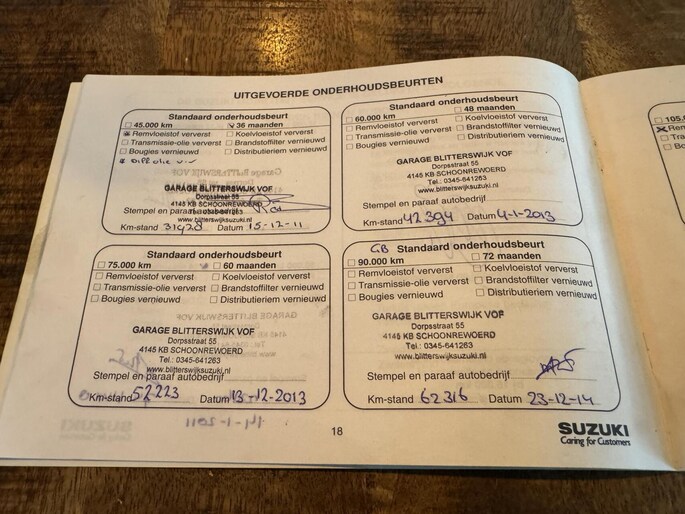 UITGEVOERDE ONDERHOUDSBEURTEN
Standaard onderhoudsbeurt
45.000 km 36 maanden
Remvloeistof ververst Koelvloeistof ververst
Transmissie-olie ververst Brandstoffilter vernieuwd
Bougies vernieuwd Distributieriem vernieuwd
GARAGE BLITTERSWIJK VOF
Dorpsstraat 55
4145 KB SCHOONREWOERD
Stempel en paraaf autobedrijf Tel.: 0345-641263
www.blitterswijksuzuki.nl
Km-stand 31928 Datum 15-12-11
Standaard onderhoudsbeurt
60.000 km 48 maanden
Remvloeistof ververst Koelvloeistof ververst
Transmissie-olie ververst Brandstoffilter vernieuwd
Bougies vernieuwd Distributieriem vernieuwd
GARAGE BLITTERSWIJK VOF
Dorpsstraat 55
4145 KB SCHOONREWOERD
Tel.: 0345-641263
www.blitterswijksuzuki.nl
Stempel en paraaf autobedrijf
Km-stand 42394 Datum 4-1-2013
Standaard onderhoudsbeurt
75.000 km 60 maanden
Remvloeistof ververst Koelvloeistof ververst
Transmissie-olie ververst Brandstoffilter vernieuwd
Bougies vernieuwd Distributieriem vernieuwd
GARAGE BLITTERSWIJK VOF
Dorpsstraat 55
4145 KB SCHOONREWOERD
Tel.: 0345-641263
www.blitterswijksuzuki.nl
Stempel en paraaf autobedrijf
Km-stand 52223 Datum 13-12-2013
GB Standaard onderhoudsbeurt
90.000 km 72 maanden
Remvloeistof ververst Koelvloeistof ververst
Transmissie-olie ververst Brandstoffilter vernieuwd
Bougies vernieuwd Distributieriem vernieuwd
GARAGE BLITTERSWIJK VOF
Dorpsstraat 55
4145 KB SCHOONREWOERD
Tel.: 0345-641263
www.blitterswijksuzuki.nl
Stempel en paraaf autobedrijf
Km-stand 62316 Datum 23-12-14
18
SUZUKI
Caring for Customers